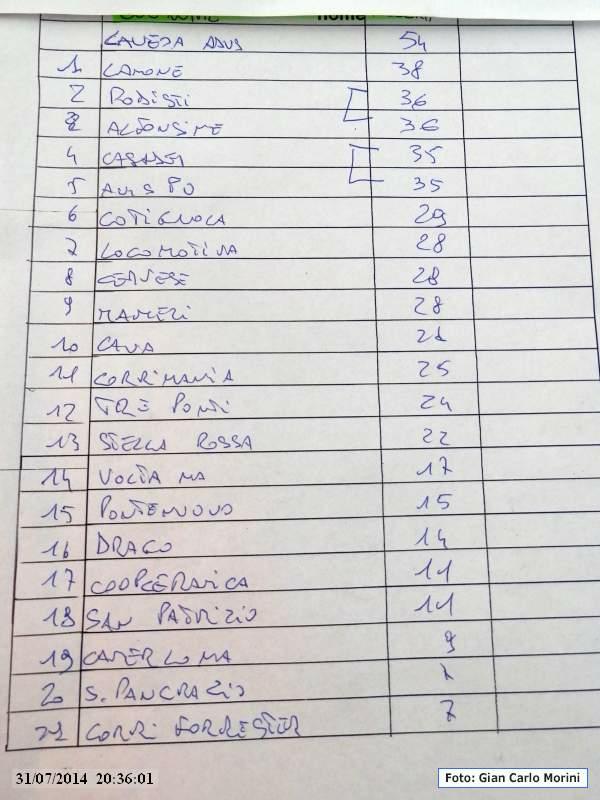 nome
CAVEJA ADVS 54
1 LAMONE 38
2 PODISTI 36
3 ALFONSINE 36
4 CASADEI 35
5 AVIS PU 35
6 COTIGNOLA 29
7 LOCOMOTIVA 28
8 CERVESE 28
9 MAMELI 28
10 CAVA
11 CORRIMANIA 25
12 TRE PONTI 24
13 STELLA ROSSA 22
14 VOLTANA 17
15 PONTENUOVO 15
16 DRAGO 14
17 COOPCERAMICA 11
18 SAN PATRIZIO 11
19 CAMERLONA 9
20 S. PANCRAZIO
21 CORRI FORRESTER 7
31/07/2014 20:36:01
Foto: Gian Carlo Morini